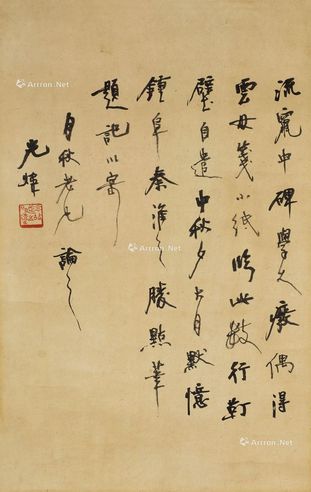 流寓中碑學久廢偶得
雲母箋小紙臨此數行
壁自遣中秋夕對月默憶
鍾阜秦淮之勝點筆
題記以寄
月秋老兄論之
光煒
Arrron.Net
Arrron.Net
Arrron.Net
Arrron.Net